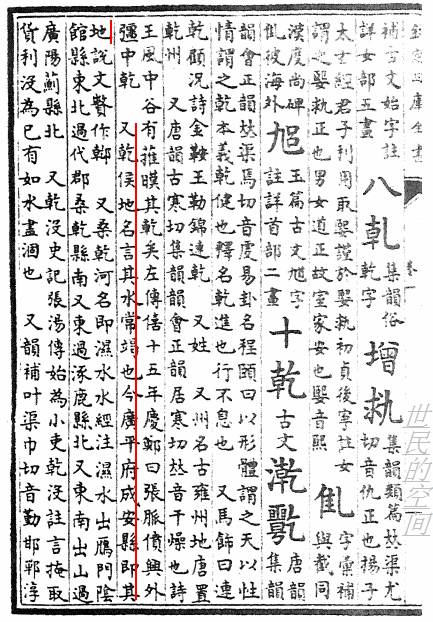 欽定四庫全書
補古文始字註
詳女部五畫
八 乹 集韻俗
乾字
增 執 集韻類篇𠀤渠尤
切音仇正也揚子
太玄經君子利用取嬰謹於嬰執初貞後寧註女
謂之嬰執正也男女道正故室家安也嬰音熙
乿 字彙補
與亂同
漢度尚碑
彼海外
旭 玉篇古文旭字
註詳首部二畫
十 乾 古文 漧 𠄊 唐韻
集韻
韻會正韻𠀤渠焉切音虔易卦名程頤曰以形體謂之天以性
情謂之乾本義乾健也釋名乾進也行不息也 又馬飾曰連
乾顧況詩金鞍玉勒錦連乾 又姓 又州名古雍州地唐置
乾州 又唐韻古寒切集韻韻會正韻居寒切𠀤音干燥也詩
王風中谷有蓷暵其乾矣左傳僖十五年慶鄭曰張脈僨興外
彊中乾 又乾侯地名言其水常竭也今廣平府成安縣即其
地說文贅作 又桑乾河名即濕水水經注濕水出鴈門陰
館縣東北過代郡桑乾縣南又東過涿鹿縣北又東南出山過
廣陽薊縣北 又乾沒史記張湯傳始為小吏乾沒註言掩取
貨利沒為己有如水盡涸也 又韻補叶渠巾切音勤邯鄲淳
世民的空间